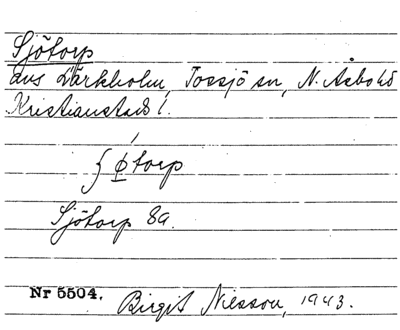 Sjötorp
aus Lärkholm, Tossjö sn, N. Åsbo hd
Kristianstads l.
Sjötorp 8a.
Nr 5504. Birgit Nilsson, 1943.